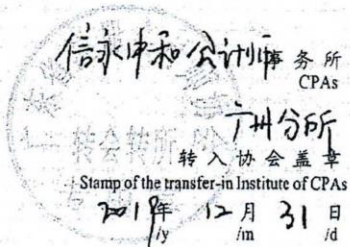 信永中和会计师事务所
CPAs
广州分所
转会转所
转入协会盖章
Stamp of the transfer-in Institute of CPAs
2019年 12月 31日
/y /m /d